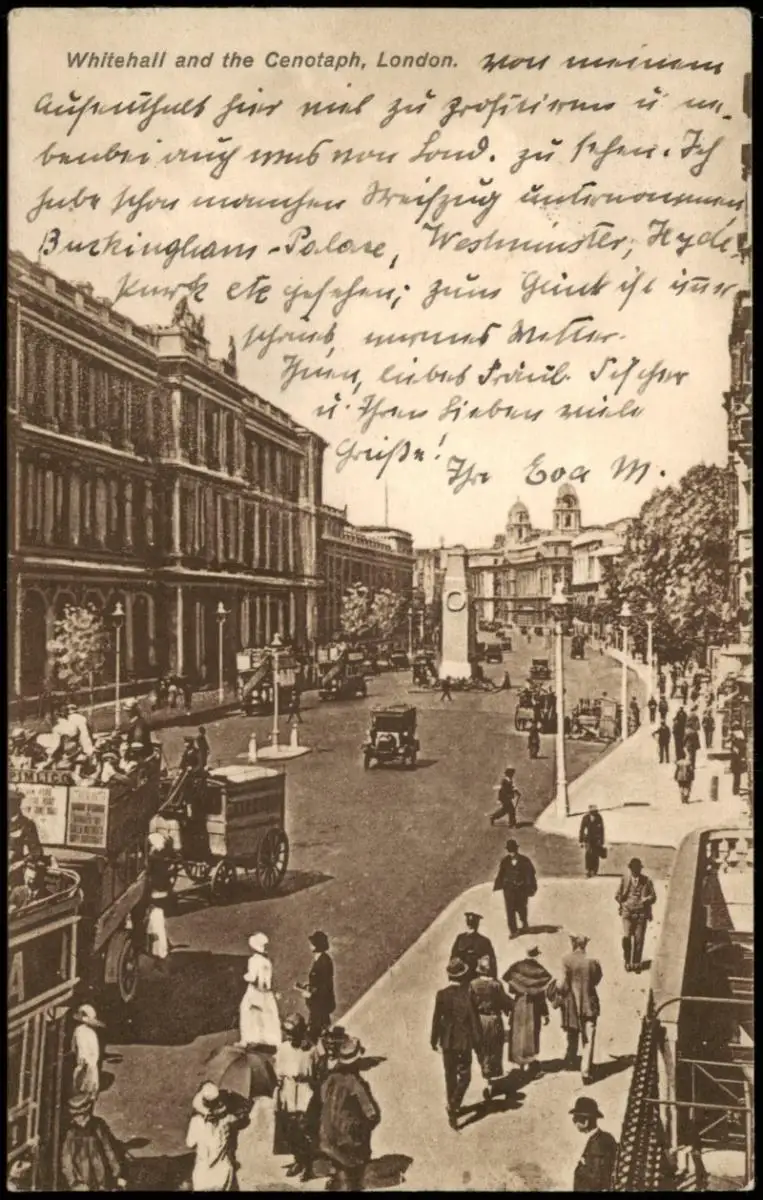 Whitehall and the Cenotaph, London.
von meinem
Aufenthalt hier viel zu profitieren u ne-
benbei auch was von Lond. zu sehen. Ich
habe schon manchen Streifzug unternommen
Buckingham-Palace, Westminster, Hyde-
Park etc gesehen; zum Glück ist immer
schönes, warmes Wetter.
Ihnen, liebes Fräul. Fischer
u. Ihren Lieben viele
Grüße!
Ihre Eva M.
PIMLICO